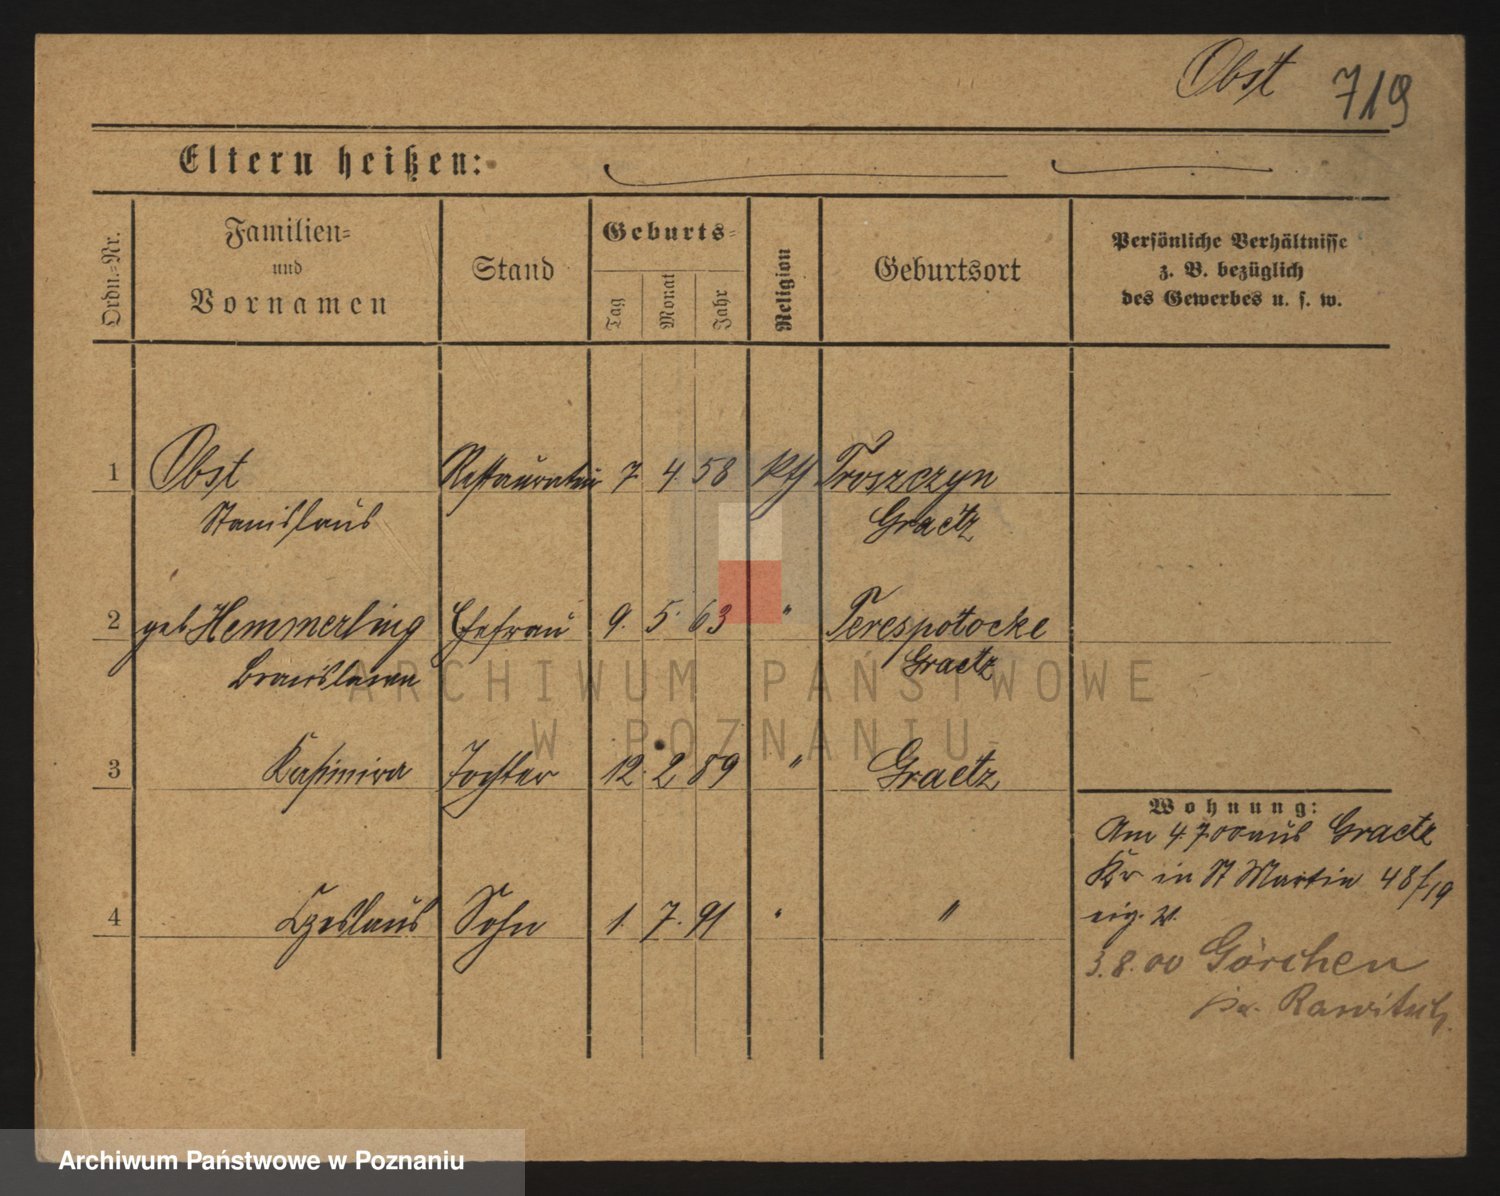 Obst 719
Eltern heißen:
Ordn.=Nr.
Familien=
und
Vornamen
Stand
Geburts=
Tag
Monat
Jahr
Religion
Geburtsort
Persönliche Verhältnisse
z. B. bezüglich
des Gewerbes u. s. w.
1 Obst Restaurateur 7. 4. 58 kth Troszczyn
Stanislaus Graetz
2 geb Hemmerling Ehefrau 9. 5. 63 " Terespotocke
Bronislawa Graetz
3 Kasimira Tochter 12. 2 89 " Graetz
Wohnung:
Am 4.7.00 aus Graetz
in St Martin 48/19
4 Czeslaus Sohn 1. 7. 91 " "
eig. W.
3.8.00 Görchen
Rawitsch.
ARCHIWUM PAŃSTWOWE
W POZNANIU
Archiwum Państwowe w Poznaniu